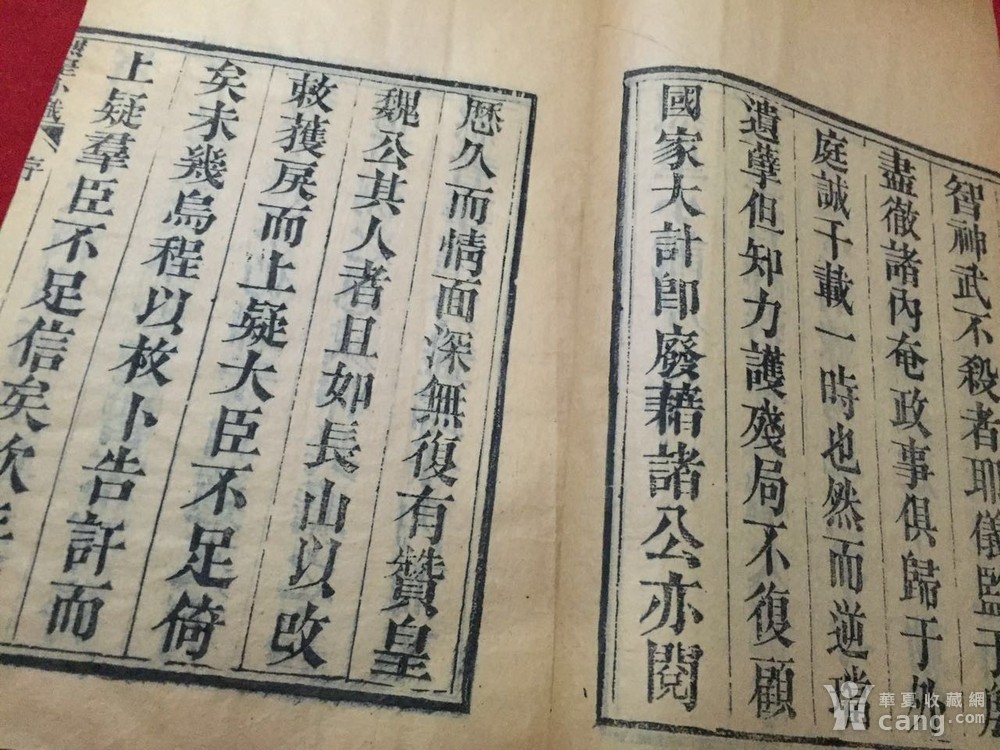 智神武不殺者耶儀監于
盡徹諸內奄政事俱歸于外
庭誠千載一時也然而逆璫
遺孽但知力護殘局不復顧
國家大計即廢藉諸公亦閱
歷久而情面深無復有贊皇
魏公其人者且如長山以改
敕獲戾而上疑大臣不足倚
矣未幾烏程以枚卜告訐而
上疑羣臣不足信矣次年
烈皇小識
序
華夏收藏網
cang.com